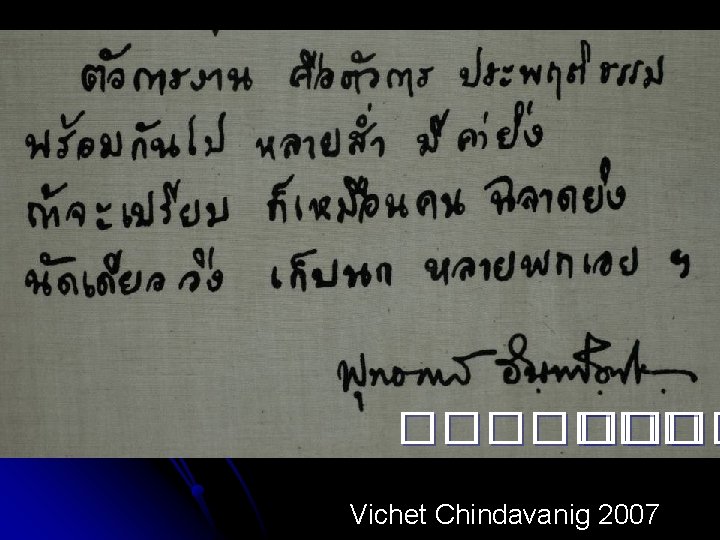 ตัวการงาน คือตัวการ ประพฤติธรรม
พร้อมกันไป หลายส่ำ มีค่ายิ่ง
ถ้าจะเปรียบ ก็เหมือนคน ฉลาดยิ่ง
นัดเดียววิ่ง เก็บนก หลายพกเอย ฯ
พุทธทาส อินฺทปญฺโญ
Vichet Chindavanig 2007